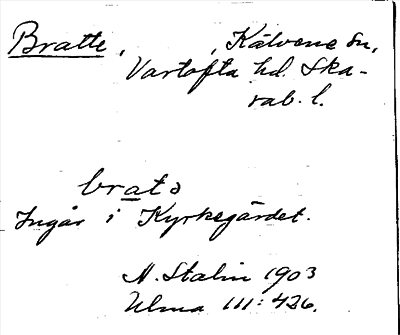 Bratte, , Kälvene sn,
Vartofta hd. Ska-
rab. l.
bratə
Ingår i Kyrkegärdet.
A. Stalin 1903
Ulma 111:426.